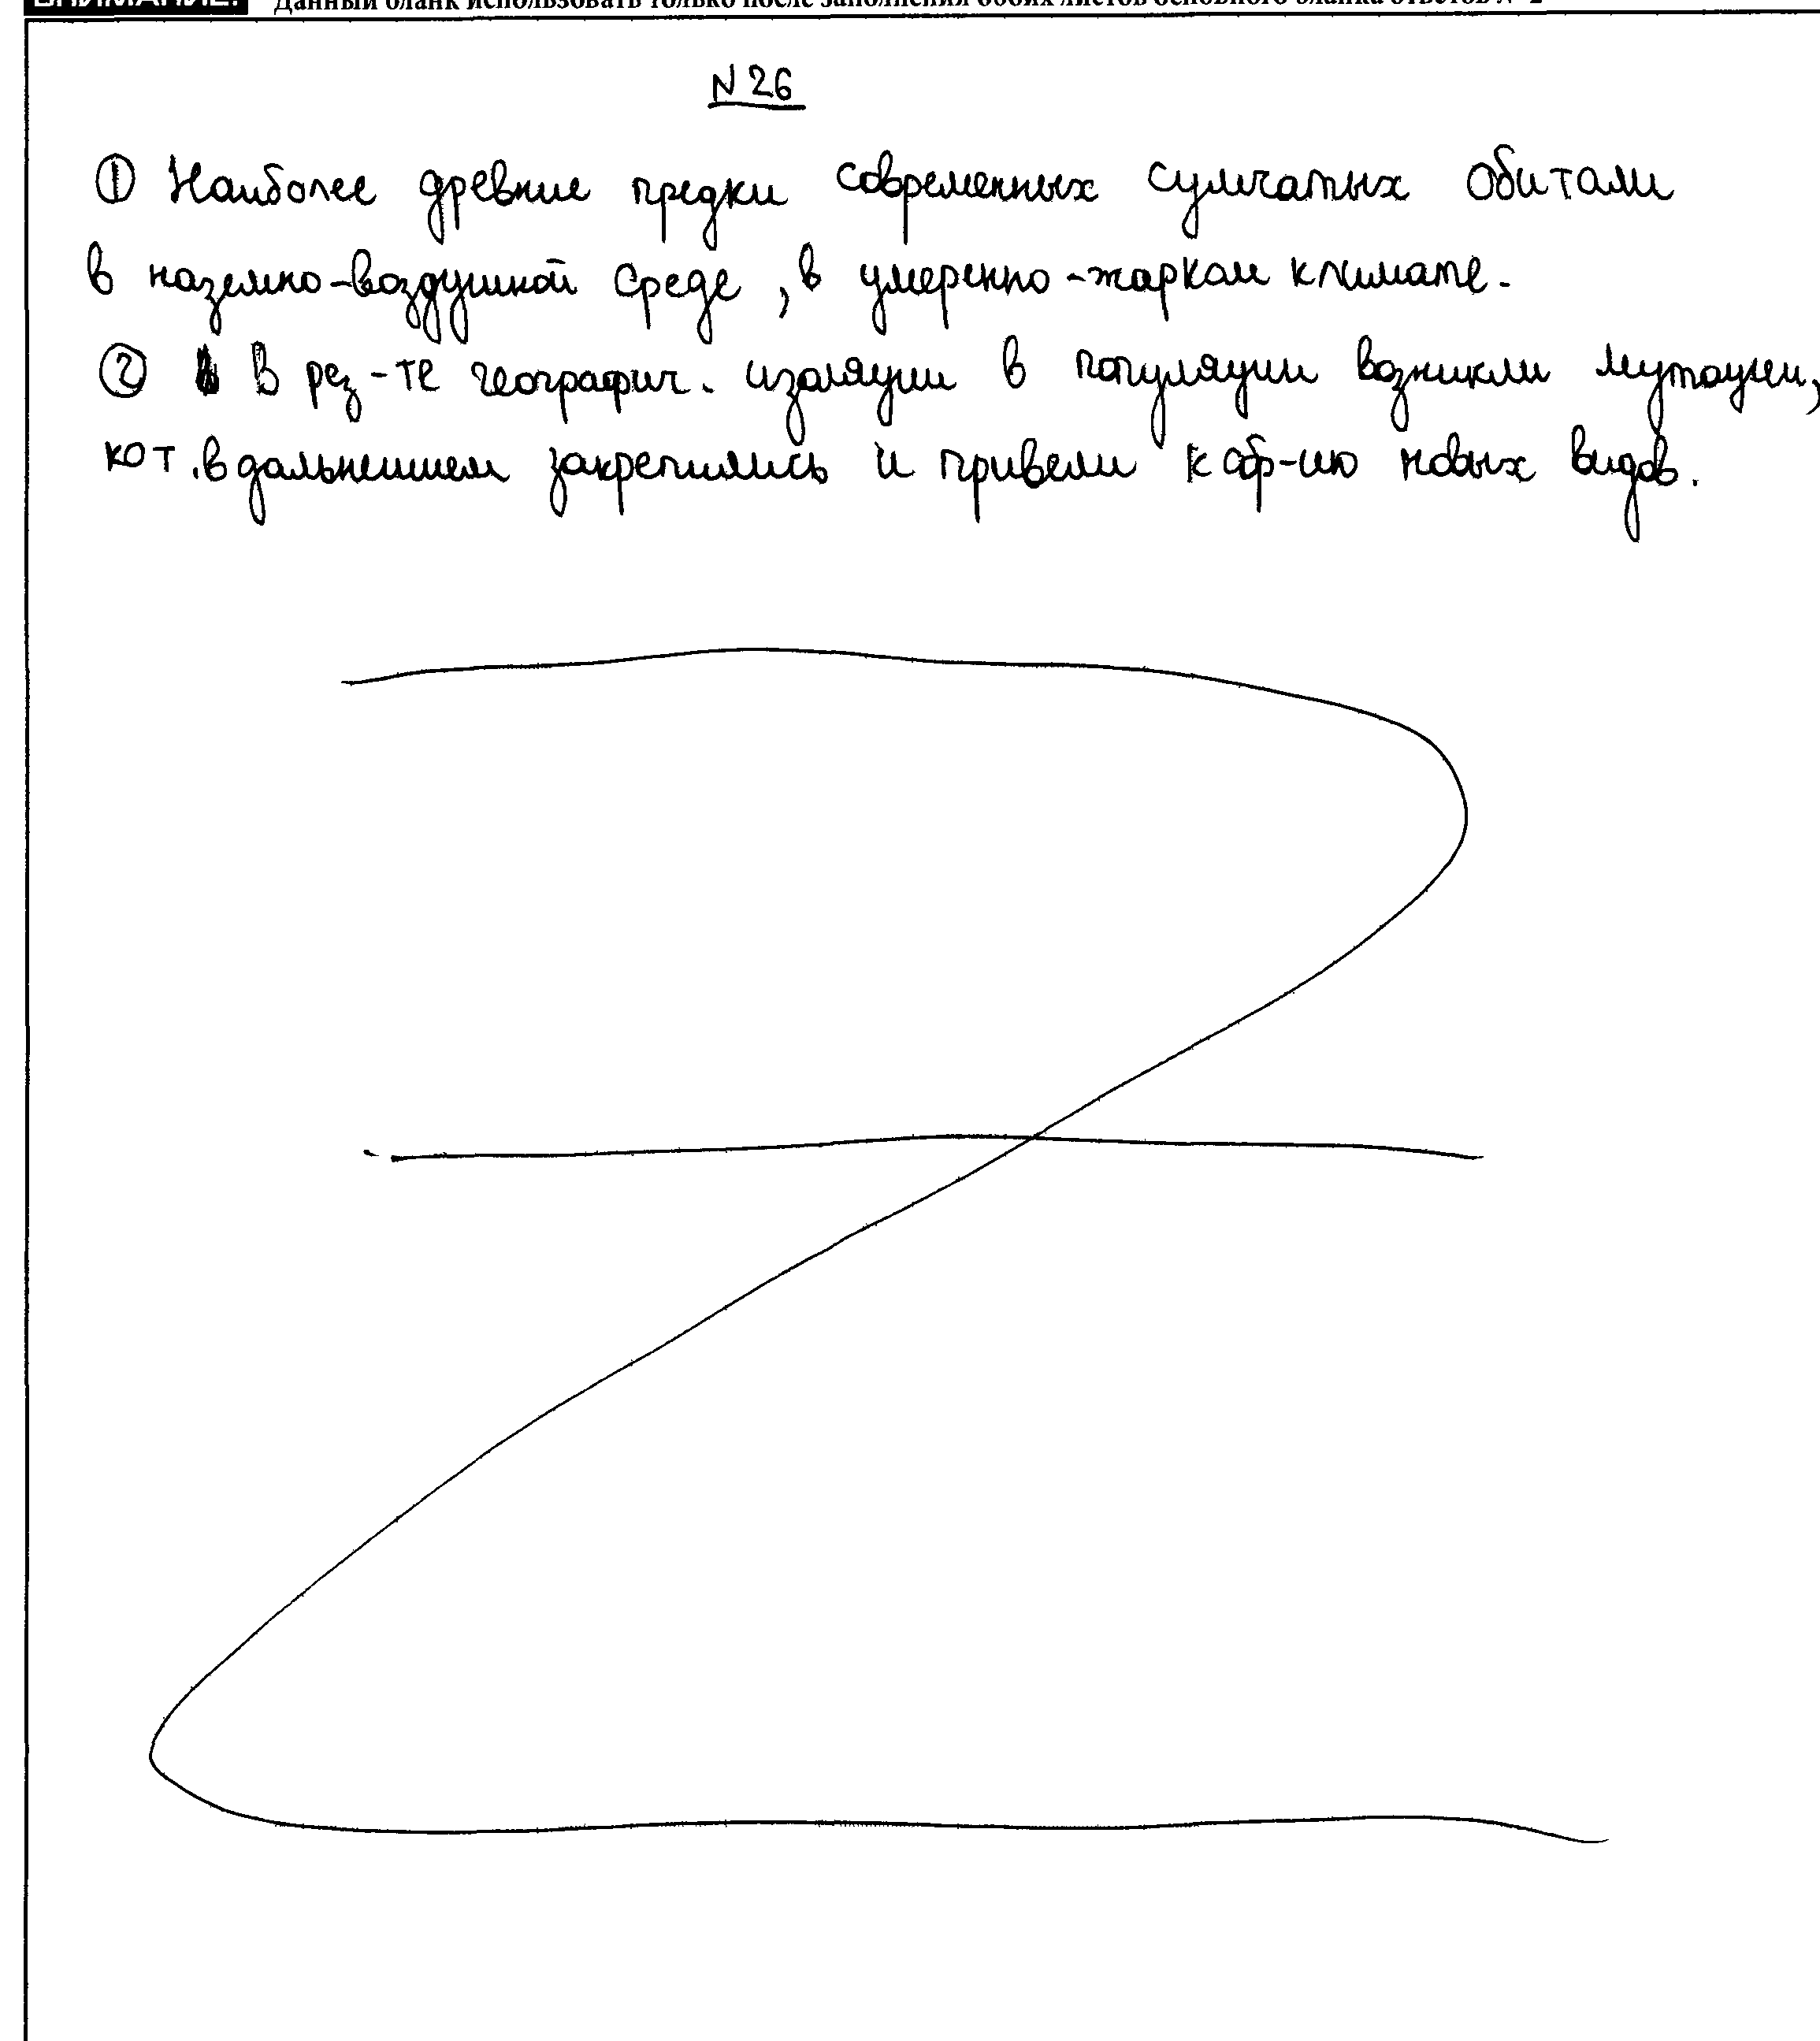 ВНИМАНИЕ! Данный бланк использовать только после заполнения обоих листов основного бланка ответов № 2
N 26
① Наиболее древние предки современных сумчатых обитали
в наземно-воздушной среде, в умеренно-жарком климате.
② В рез-те географич. изоляции в популяции возникли мутации,
кот. в дальнейшем закрепились и привели к обр-ию новых видов.